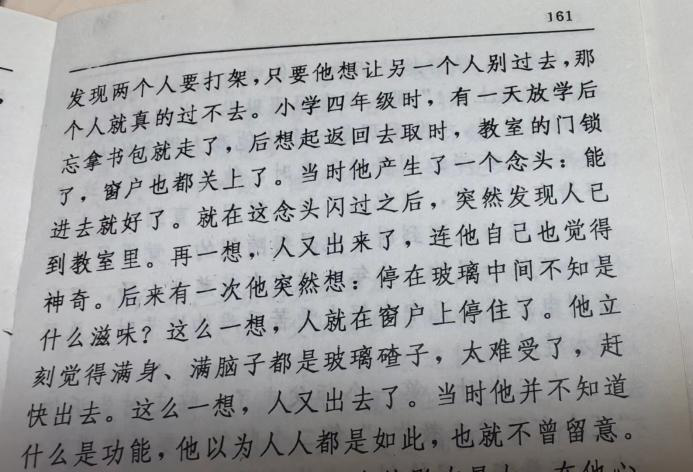 161
发现两个人要打架，只要他想让另一个人别过去，那
个人就真的过不去。小学四年级时，有一天放学后
忘拿书包就走了，后想起返回去取时，教室的门锁
了，窗户也都关上了。当时他产生了一个念头：能
进去就好了。就在这念头闪过之后，突然发现人已
到教室里。再一想，人又出来了，连他自己也觉得
神奇。后来有一次他突然想：停在玻璃中间不知是
什么滋味？这么一想，人就在窗户上停住了。他立
刻觉得满身、满脑子都是玻璃碴子，太难受了，赶
快出去。这么一想，人又出去了。当时他并不知道
什么是功能，他以为人人都是如此，也就不曾留意。